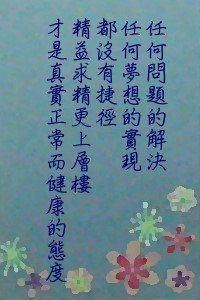 任何問題的解決
任何夢想的實現
都沒有捷徑
精益求精更上層樓
才是真實正常而健康的態度